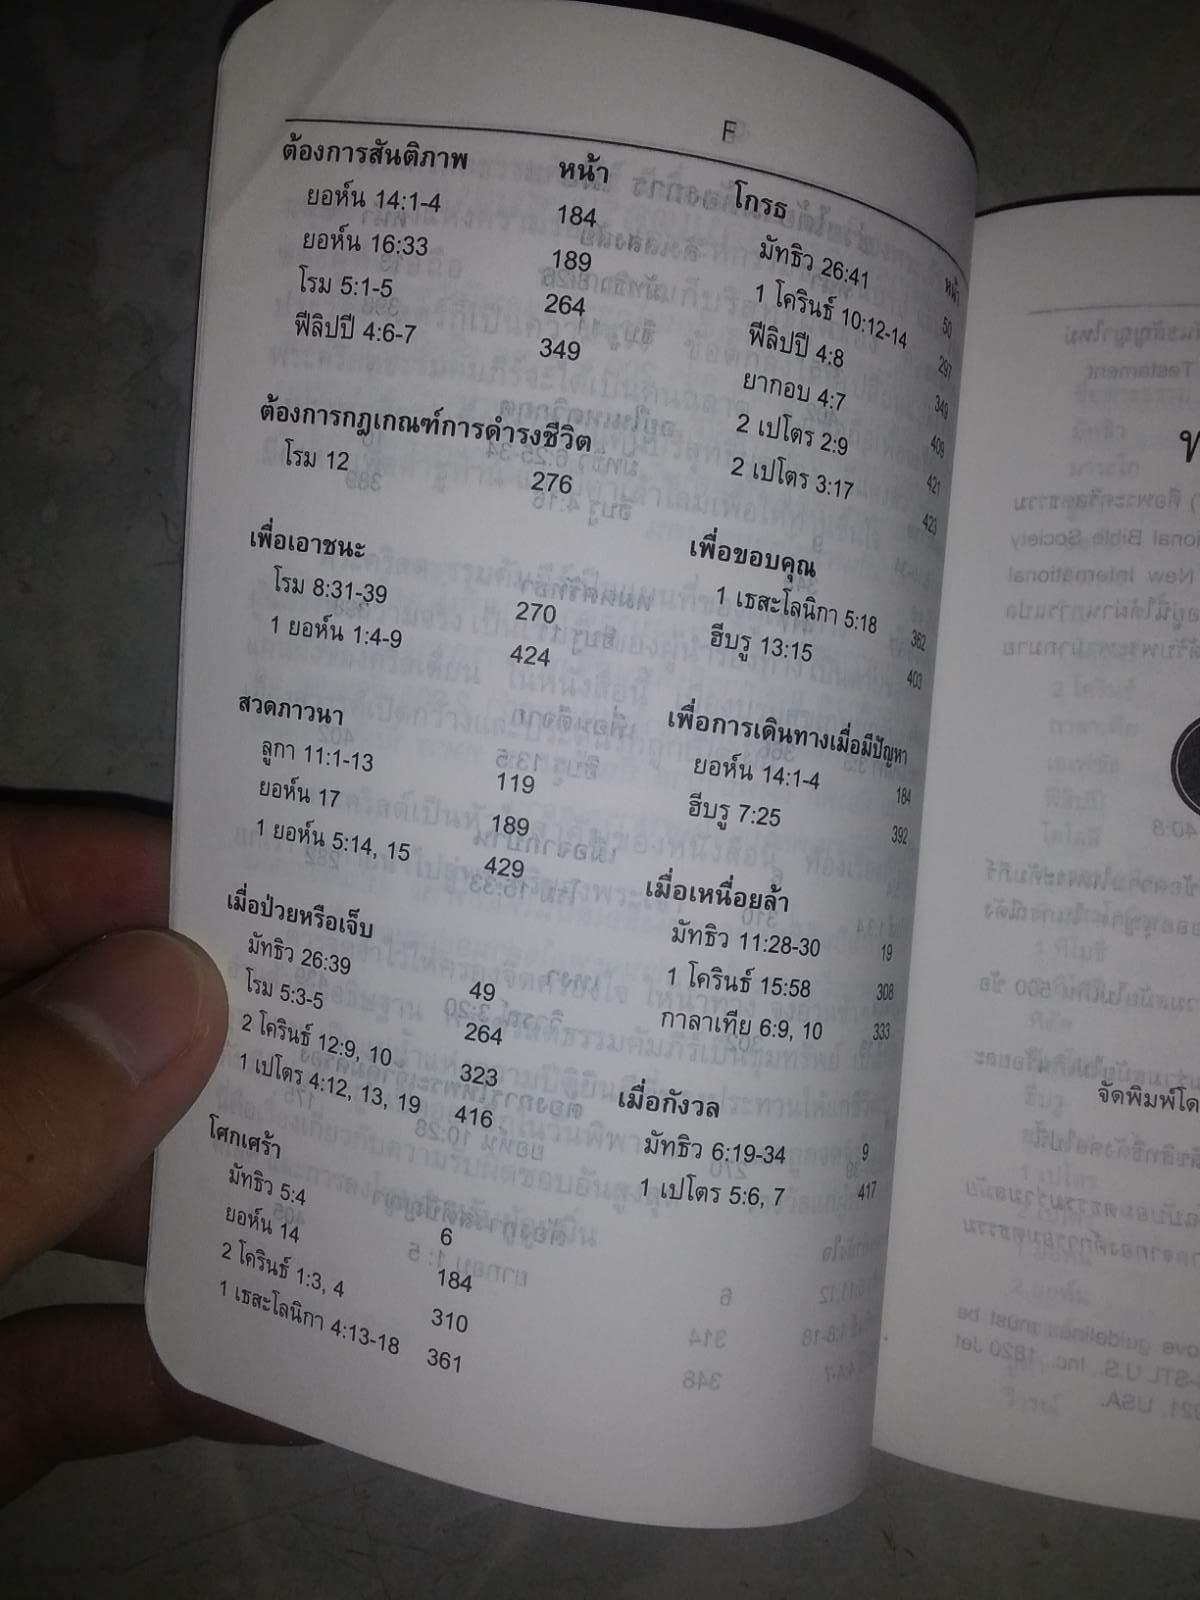 F
ต้องการสันติภาพ หน้า
ยอห์น 14:1-4 184
ยอห์น 16:33 189
โรม 5:1-5 264
ฟีลิปปี 4:6-7 349
ต้องการกฎเกณฑ์การดำรงชีวิต
โรม 12 276
เพื่อเอาชนะ
โรม 8:31-39 270
1 ยอห์น 1:4-9 424
สวดภาวนา
ลูกา 11:1-13 119
ยอห์น 17 189
1 ยอห์น 5:14, 15 429
เมื่อป่วยหรือเจ็บ
มัทธิว 26:39 49
โรม 5:3-5 264
2 โครินธ์ 12:9, 10 323
1 เปโตร 4:12, 13, 19 416
โศกเศร้า
มัทธิว 5:4 6
ยอห์น 14 184
2 โครินธ์ 1:3, 4 310
1 เธสะโลนิกา 4:13-18 361
โกรธ หน้า
มัทธิว 26:41 50
1 โครินธ์ 10:12-14 297
ฟีลิปปี 4:8 349
ยากอบ 4:7 409
2 เปโตร 2:9 421
2 เปโตร 3:17 423
เพื่อขอบคุณ
1 เธสะโลนิกา 5:18 362
ฮีบรู 13:15 403
เพื่อการเดินทางเมื่อมีปัญหา
ยอห์น 14:1-4 184
ฮีบรู 7:25 392
เมื่อเหนื่อยล้า
มัทธิว 11:28-30 19
1 โครินธ์ 15:58 308
กาลาเทีย 6:9, 10 333
เมื่อกังวล
มัทธิว 6:19-34 9
1 เปโตร 5:6, 7 417
จัดพิมพ์โด